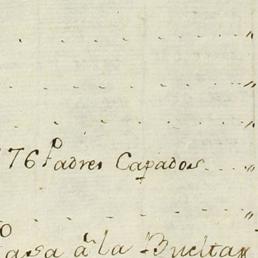 76 Padres Capados.... "
Pasa â la Buelta